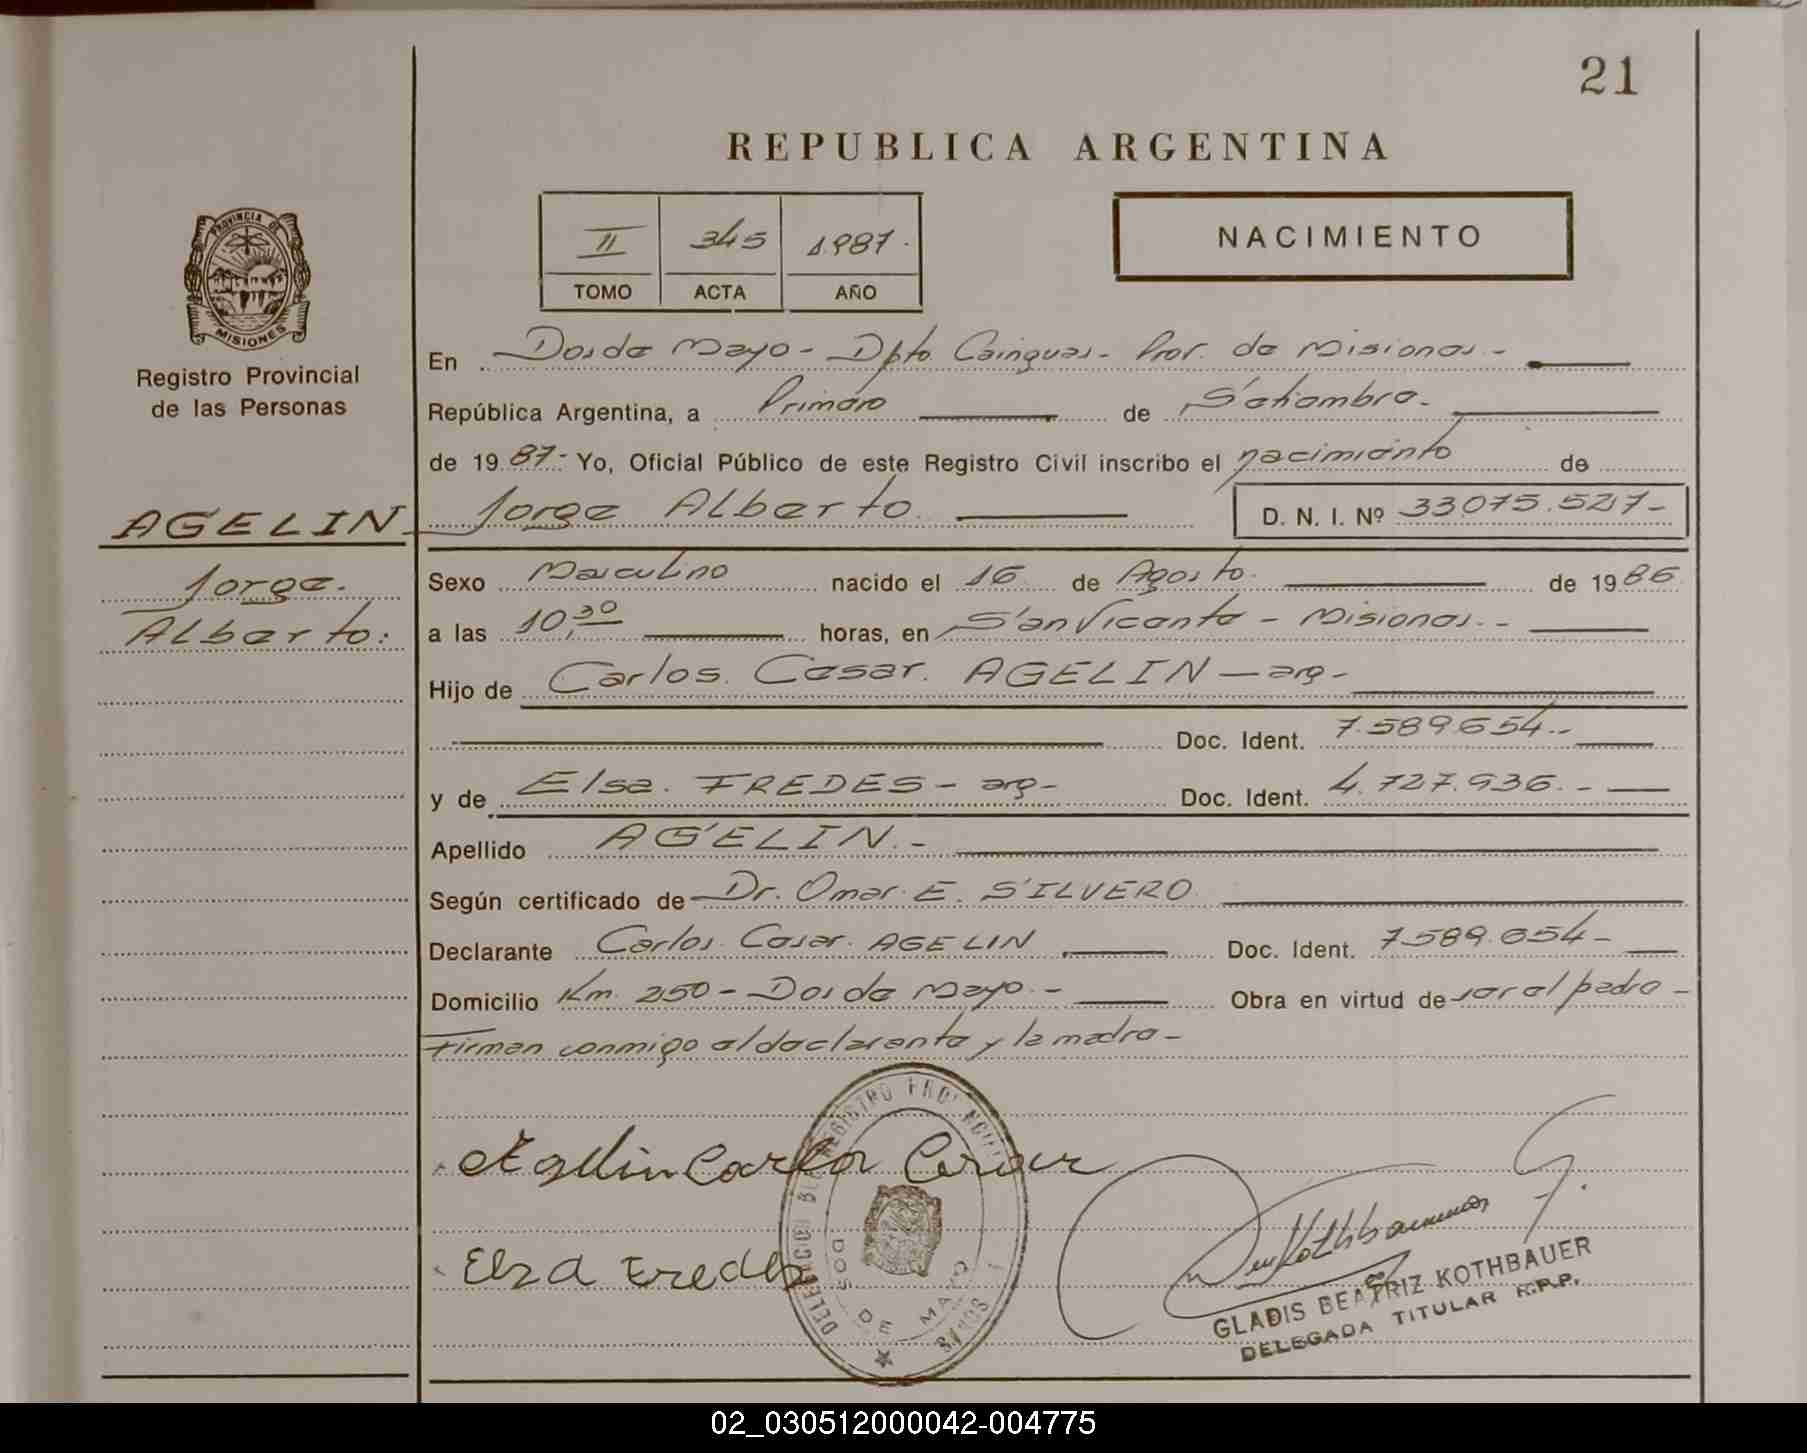 21
REPUBLICA ARGENTINA
PROVINCIA DE
MISIONES
Registro Provincial
de las Personas
II 345 1.987.
TOMO ACTA AÑO
NACIMIENTO
En Dos de Mayo - Dpto. Cainguas - Prov. de Misiones -
República Argentina, a Primero de Setiembre.
de 1987- Yo, Oficial Público de este Registro Civil inscribo el nacimiento de
AGELIN Jorge Alberto. D. N. I. Nº 33.075.527-
Jorge.
Alberto:
Sexo Masculino nacido el 16 de Agosto. de 1986
a las 10,30 horas, en San Vicente - Misiones. -
Hijo de Carlos Cesar. AGELIN - arg -
Doc. Ident. 7.589.654.-
y de Elsa. FREDES - arg - Doc. Ident. 4.727.936. -
Apellido AGELIN. -
Según certificado de Dr. Omar E. SILVERO
Declarante Carlos Cesar. AGELIN Doc. Ident. 7.589.654-
Domicilio Km. 250 - Dos de Mayo. - Obra en virtud de ser el padre -
Firman conmigo el declarante y la madre -
Agelin Carlos Cesar
Elsa Fredes
DOS DE MAYO
GLADIS BEATRIZ KOTHBAUER
DELEGADA TITULAR R.P.P.
02_030512000042-004775